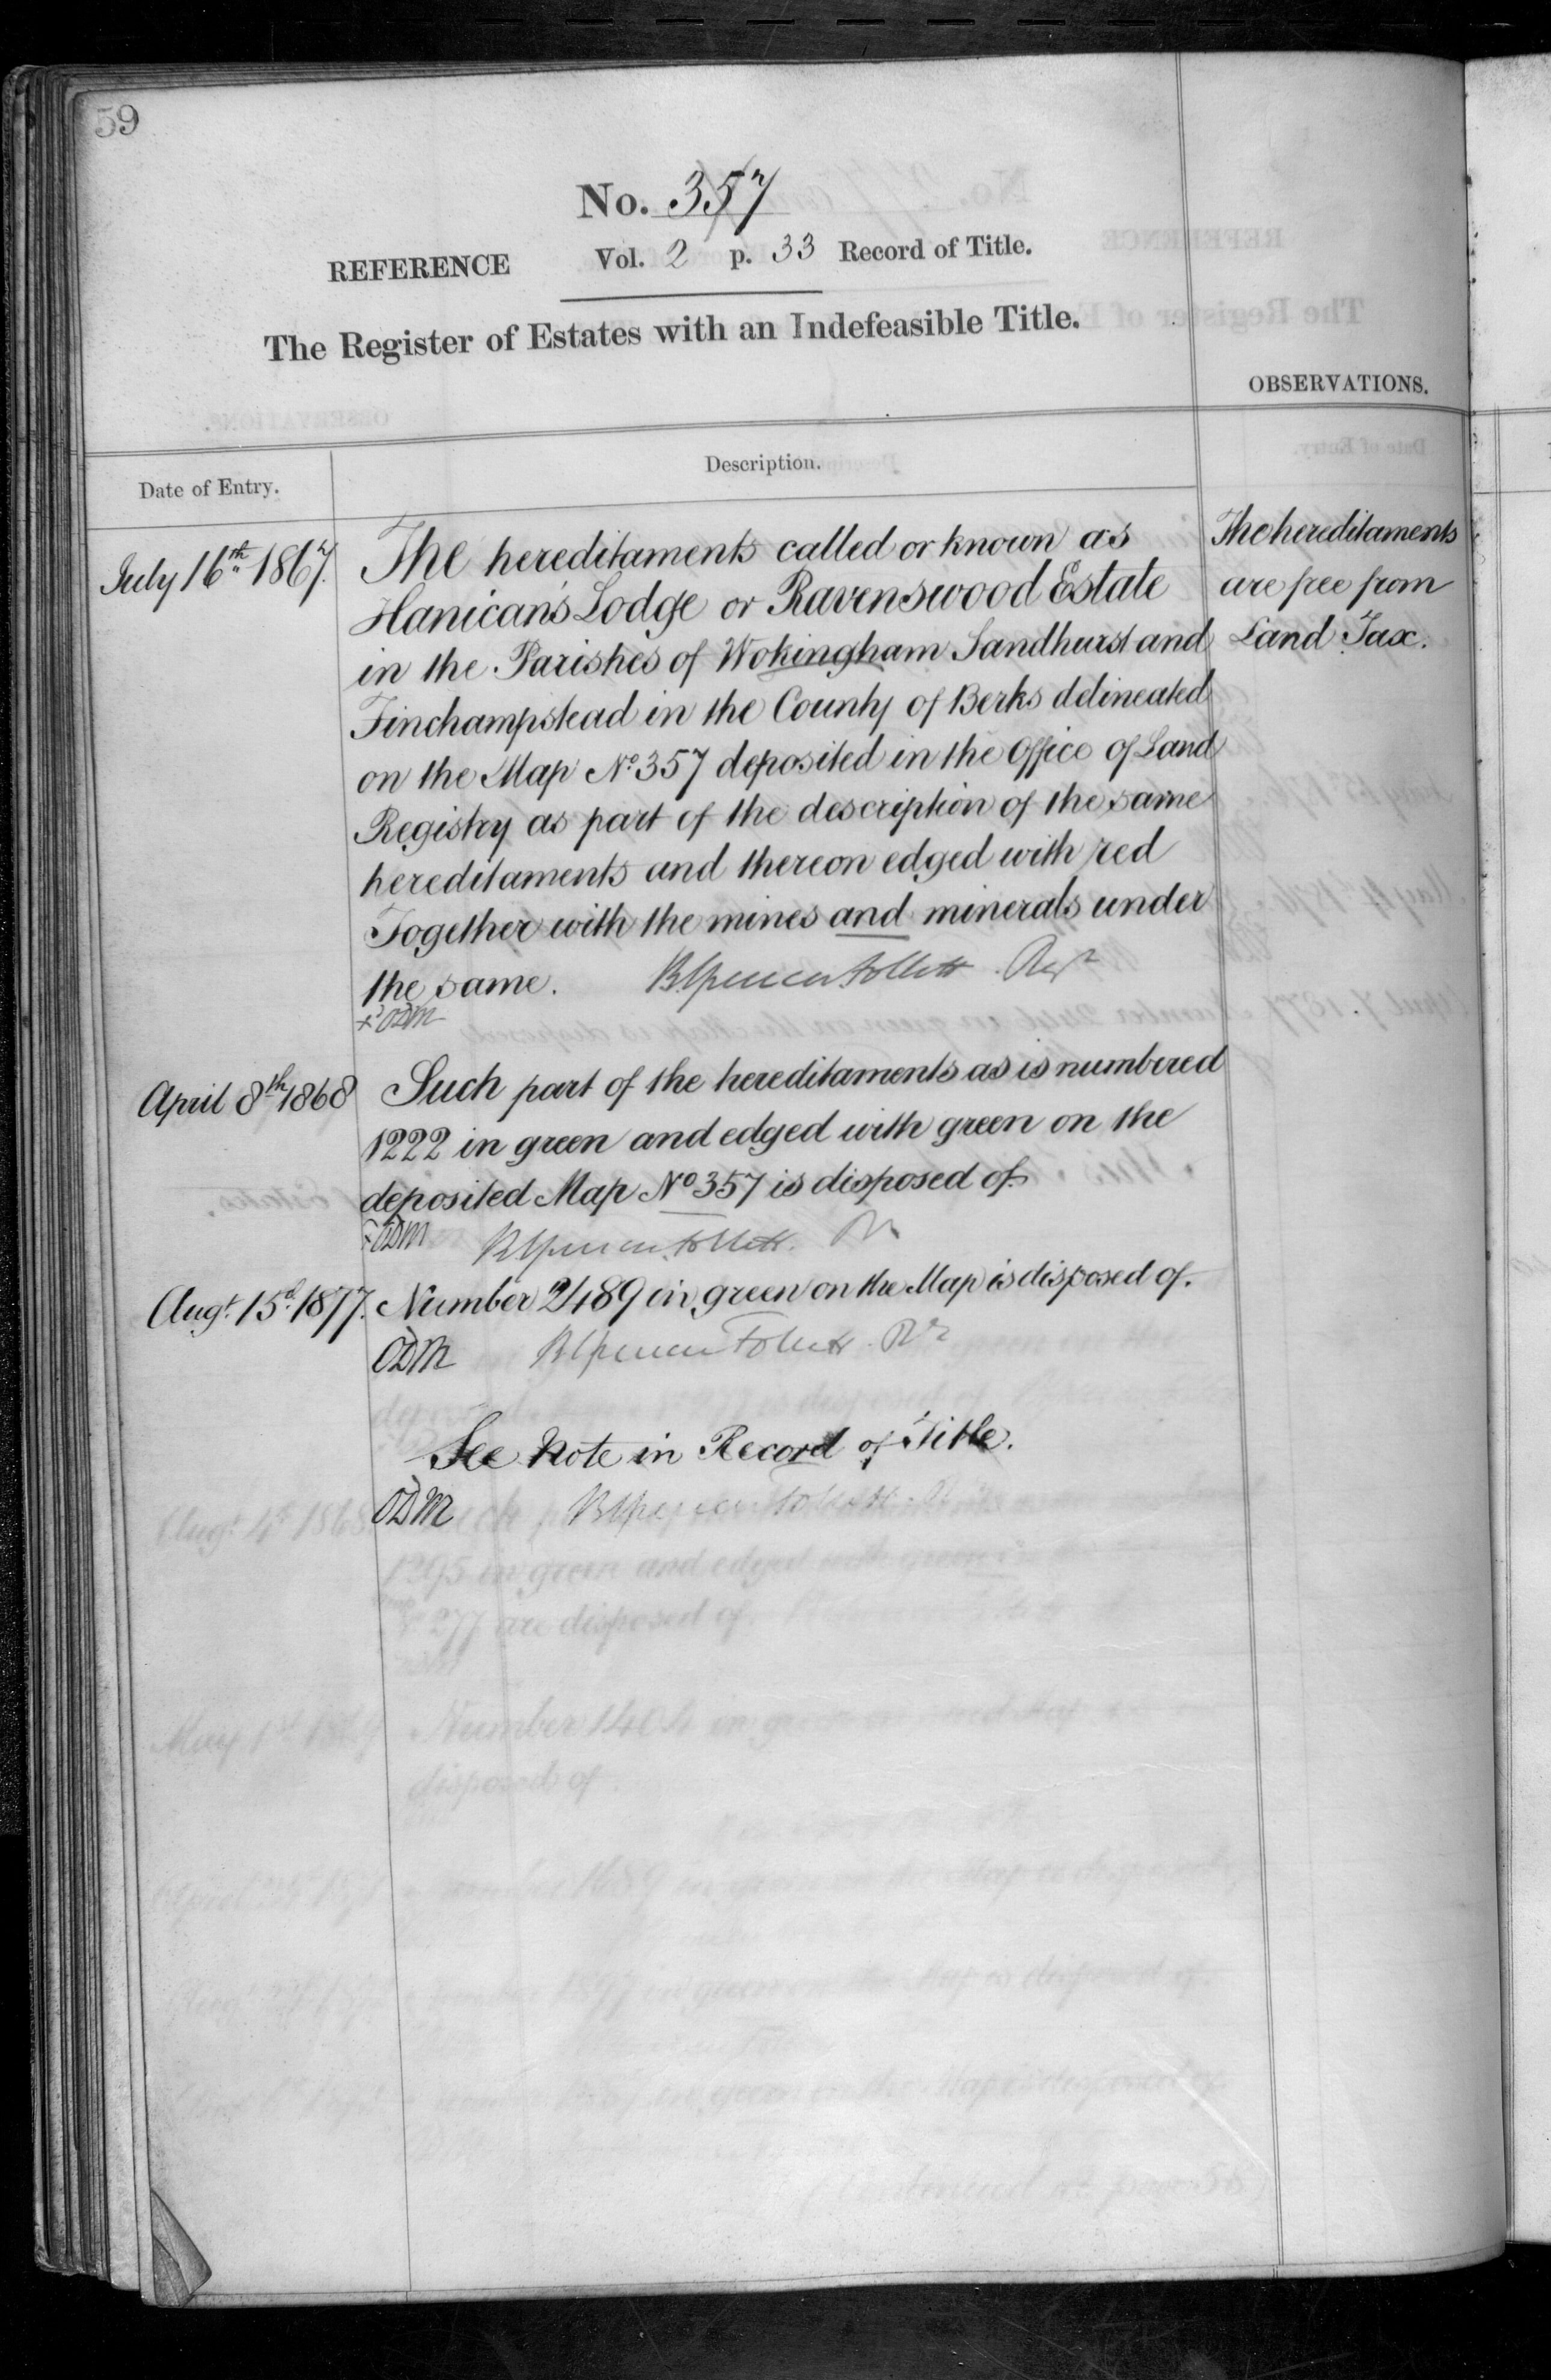 59
No. 357
REFERENCE Vol. 2 p. 33 Record of Title.
The Register of Estates with an Indefeasible Title.
OBSERVATIONS.
Date of Entry.
Description.
July 16th 1867. The hereditaments called or known as
Hanican's Lodge or Ravenswood Estate
in the Parishes of Wokingham Sandhurst and
Finchampstead in the County of Berks delineated
on the Map No. 357 deposited in the Office of Land
Registry as part of the description of the same
hereditaments and thereon edged with red
Together with the mines and minerals under
the same. B Spencer Follett Regr
ODM
The hereditaments
are free from
Land Tax.
April 8th 1868 Such part of the hereditaments as is numbered
1222 in green and edged with green on the
deposited Map No 357 is disposed of
ODM B Spencer Follett. Rr
Augt. 15th 1877. Number 2489 in green on the Map is disposed of.
ODM B Spencer Follett Rr
See Note in Record of Title.
ODM B Spencer Follett Rr